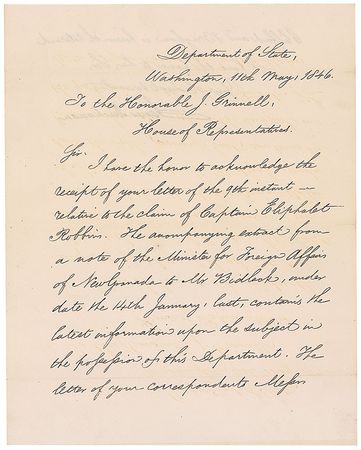 Department of State,
Washington, 11th May, 1846.
To the Honorable J. Grinnell,
House of Representatives.
Sir.
I have the honor to acknowledge the
receipt of your letter of the 9th instant –
relative to the claim of Captain Eliphalet
Robbins. The accompanying extract from
a note of the Minister for Foreign Affairs
of New Granada to Mr Bidlack, under
date the 14th January, last, contains the
latest information upon the subject in
the possession of this Department. The
letter of your correspondents Messrs